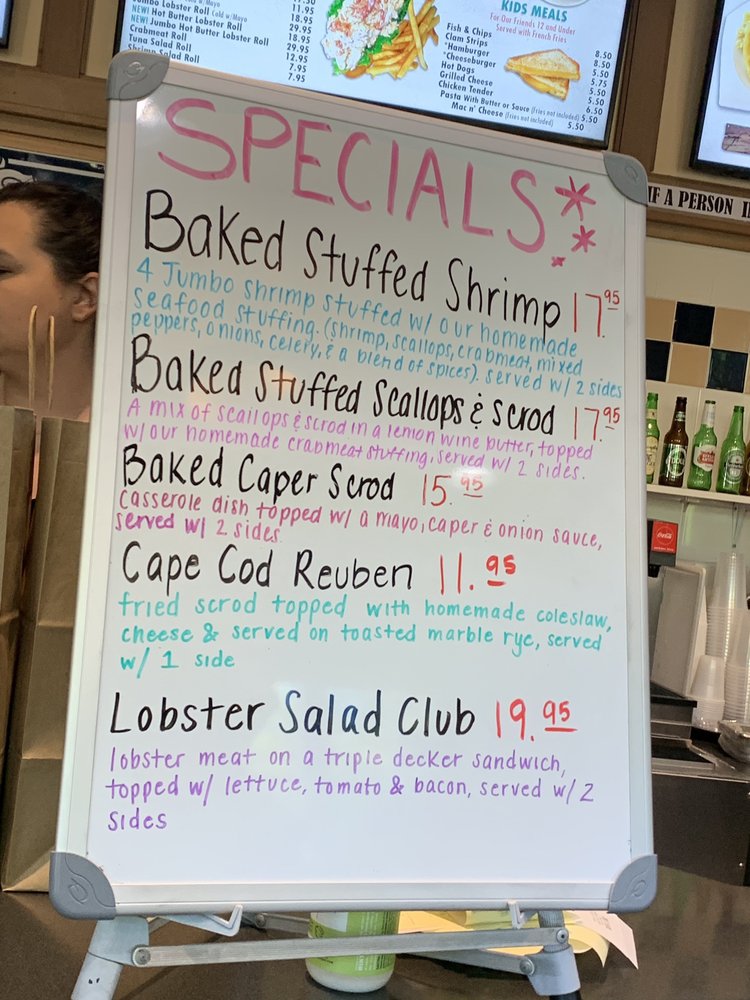 17.50
Jumbo Lobster Roll Cold w/Mayo 11.95
NEW! Hot Butter Lobster Roll 18.95
NEW! Jumbo Hot Butter Lobster Roll 29.95
Crabmeat Roll 12.95
Tuna Salad Roll 7.95
Shrimp Salad Roll 7.95
KIDS MEALS
For Our Friends 12 and Under
Served with French Fries
Fish & Chips 8.50
Clam Strips 8.50
*Hamburger 5.50
*Cheeseburger 5.75
Hot Dogs 5.50
Grilled Cheese 5.50
Chicken Tender 6.50
Pasta With Butter or Sauce (Fries not included) 5.50
Mac n' Cheese (Fries not included) 5.50
IF A PERSON
SPECIALS**
Baked Stuffed Shrimp 17.95
4 Jumbo shrimp stuffed w/ our homemade
seafood stuffing. (shrimp, scallops, crabmeat, mixed
peppers, onions, celery, & a blend of spices). served w/ 2 sides
Baked Stuffed Scallops & Scrod 17.95
A mix of scallops & scrod in a lemon wine butter, topped
w/ our homemade crabmeat stuffing, served w/ 2 sides.
Baked Caper Scrod 15.95
casserole dish topped w/ a mayo, caper & onion sauce,
served w/ 2 sides
Cape Cod Reuben 11.95
fried scrod topped with homemade coleslaw,
cheese & served on toasted marble rye, served
w/ 1 side
Lobster Salad Club 19.95
lobster meat on a triple decker sandwich,
topped w/ lettuce, tomato & bacon, served w/ 2
sides